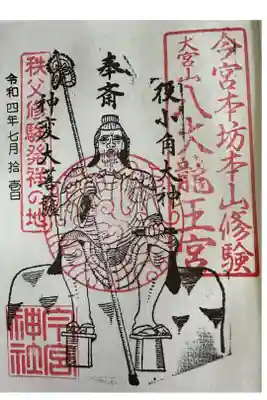 今宮本坊本山修験
大宮山
八大龍王宮
役小角大神
奉斎
神変大菩薩
秩父修験発祥の地
令和四年七月拾壱日
今宮神社